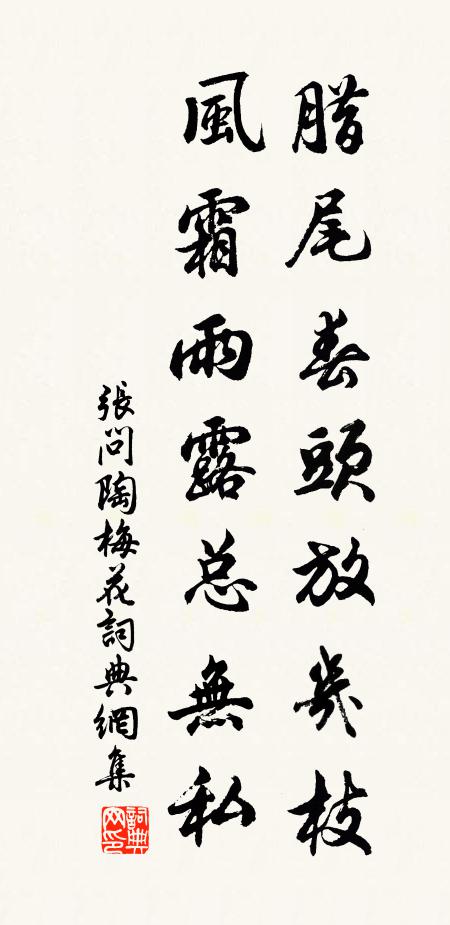 腊尾春頭放幾枝
風霜雨露总無私
張問陶梅花詞典網集
詞典
網印